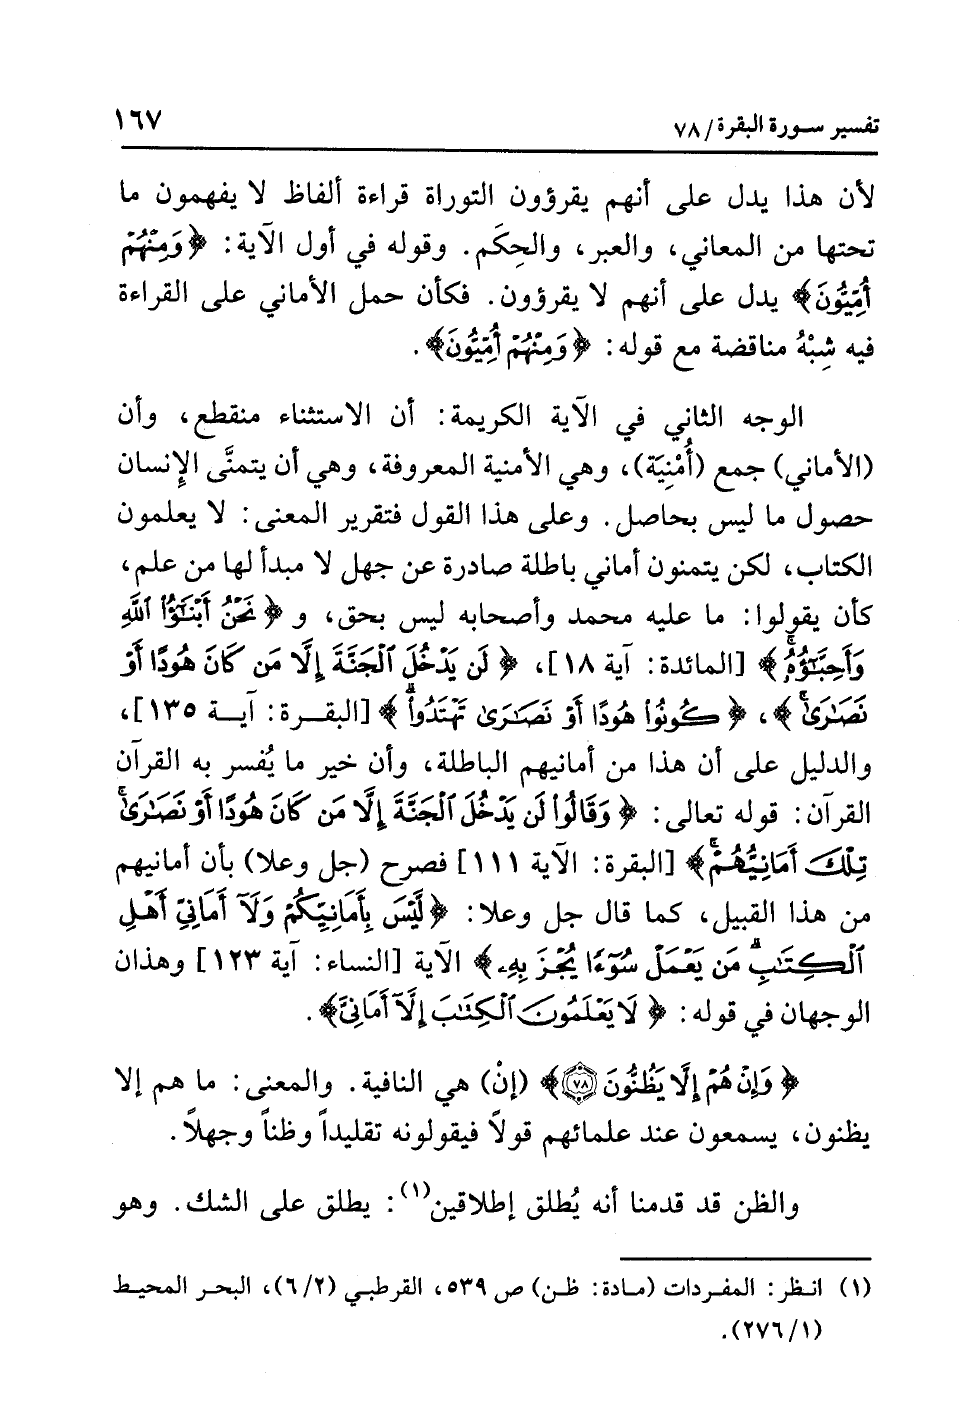 تفسير سورة البقرة/ ٧٨ ١٦٧
لأن هذا يدل على أنهم يقرؤون التوراة قراءة ألفاظ لا يفهمون ما
تحتها من المعاني، والعبر، والحِكَم. وقوله في أول الآية: ﴿وَمِنْهُمْ
أُمِّيُّونَ﴾ يدل على أنهم لا يقرؤون. فكأن حمل الأماني على القراءة
فيه شِبْهُ مناقضة مع قوله: ﴿وَمِنْهُمْ أُمِّيُّونَ﴾.
الوجه الثاني في الآية الكريمة: أن الاستثناء منقطع، وأن
(الأماني) جمع (أُمْنِيَة)، وهي الأمنية المعروفة، وهي أن يتمنَّى الإنسان
حصول ما ليس بحاصل. وعلى هذا القول فتقرير المعنى: لا يعلمون
الكتاب، لكن يتمنون أماني باطلة صادرة عن جهل لا مبدأ لها من علم،
كأن يقولوا: ما عليه محمد وأصحابه ليس بحق، و ﴿نَحْنُ أَبْنَٰٓؤُا۟ ٱللَّهِ
وَأَحِبَّٰٓؤُهُۥۚ﴾ [المائدة: آية ١٨]، ﴿لَن يَدْخُلَ ٱلْجَنَّةَ إِلَّا مَن كَانَ هُودًا أَوْ
نَصَٰرَىٰۗ﴾، ﴿كُونُوا۟ هُودًا أَوْ نَصَٰرَىٰ تَهْتَدُوا۟ۗ﴾ [البقرة: آية ١٣٥]،
والدليل على أن هذا من أمانيهم الباطلة، وأن خير ما يُفسر به القرآن
القرآن: قوله تعالى: ﴿وَقَالُوا۟ لَن يَدْخُلَ ٱلْجَنَّةَ إِلَّا مَن كَانَ هُودًا أَوْ نَصَٰرَىٰۗ
تِلْكَ أَمَانِيُّهُمْۗ﴾ [البقرة: الآية ١١١] فصرح (جل وعلا) بأن أمانيهم
من هذا القبيل، كما قال جل وعلا: ﴿لَّيْسَ بِأَمَانِيِّكُمْ وَلَآ أَمَانِىِّ أَهْلِ
ٱلْكِتَٰبِۗ مَن يَعْمَلْ سُوٓءًا يُجْزَ بِهِۦ﴾ الآية [النساء: آية ١٢٣] وهذان
الوجهان في قوله: ﴿لَا يَعْلَمُونَ ٱلْكِتَٰبَ إِلَّآ أَمَانِىَّ﴾.
﴿وَإِنْ هُمْ إِلَّا يَظُنُّونَ ٧٨﴾ (إنْ) هي النافية. والمعنى: ما هم إلا
يظنون، يسمعون عند علمائهم قولاً فيقولونه تقليداً وظناً وجهلاً.
والظن قد قدمنا أنه يُطلق إطلاقين(١): يطلق على الشك. وهو
(١) انظر: المفردات (مادة: ظن) ص ٥٣٩، القرطبي (٦/٢)، البحر المحيط
(٢٧٦/١).